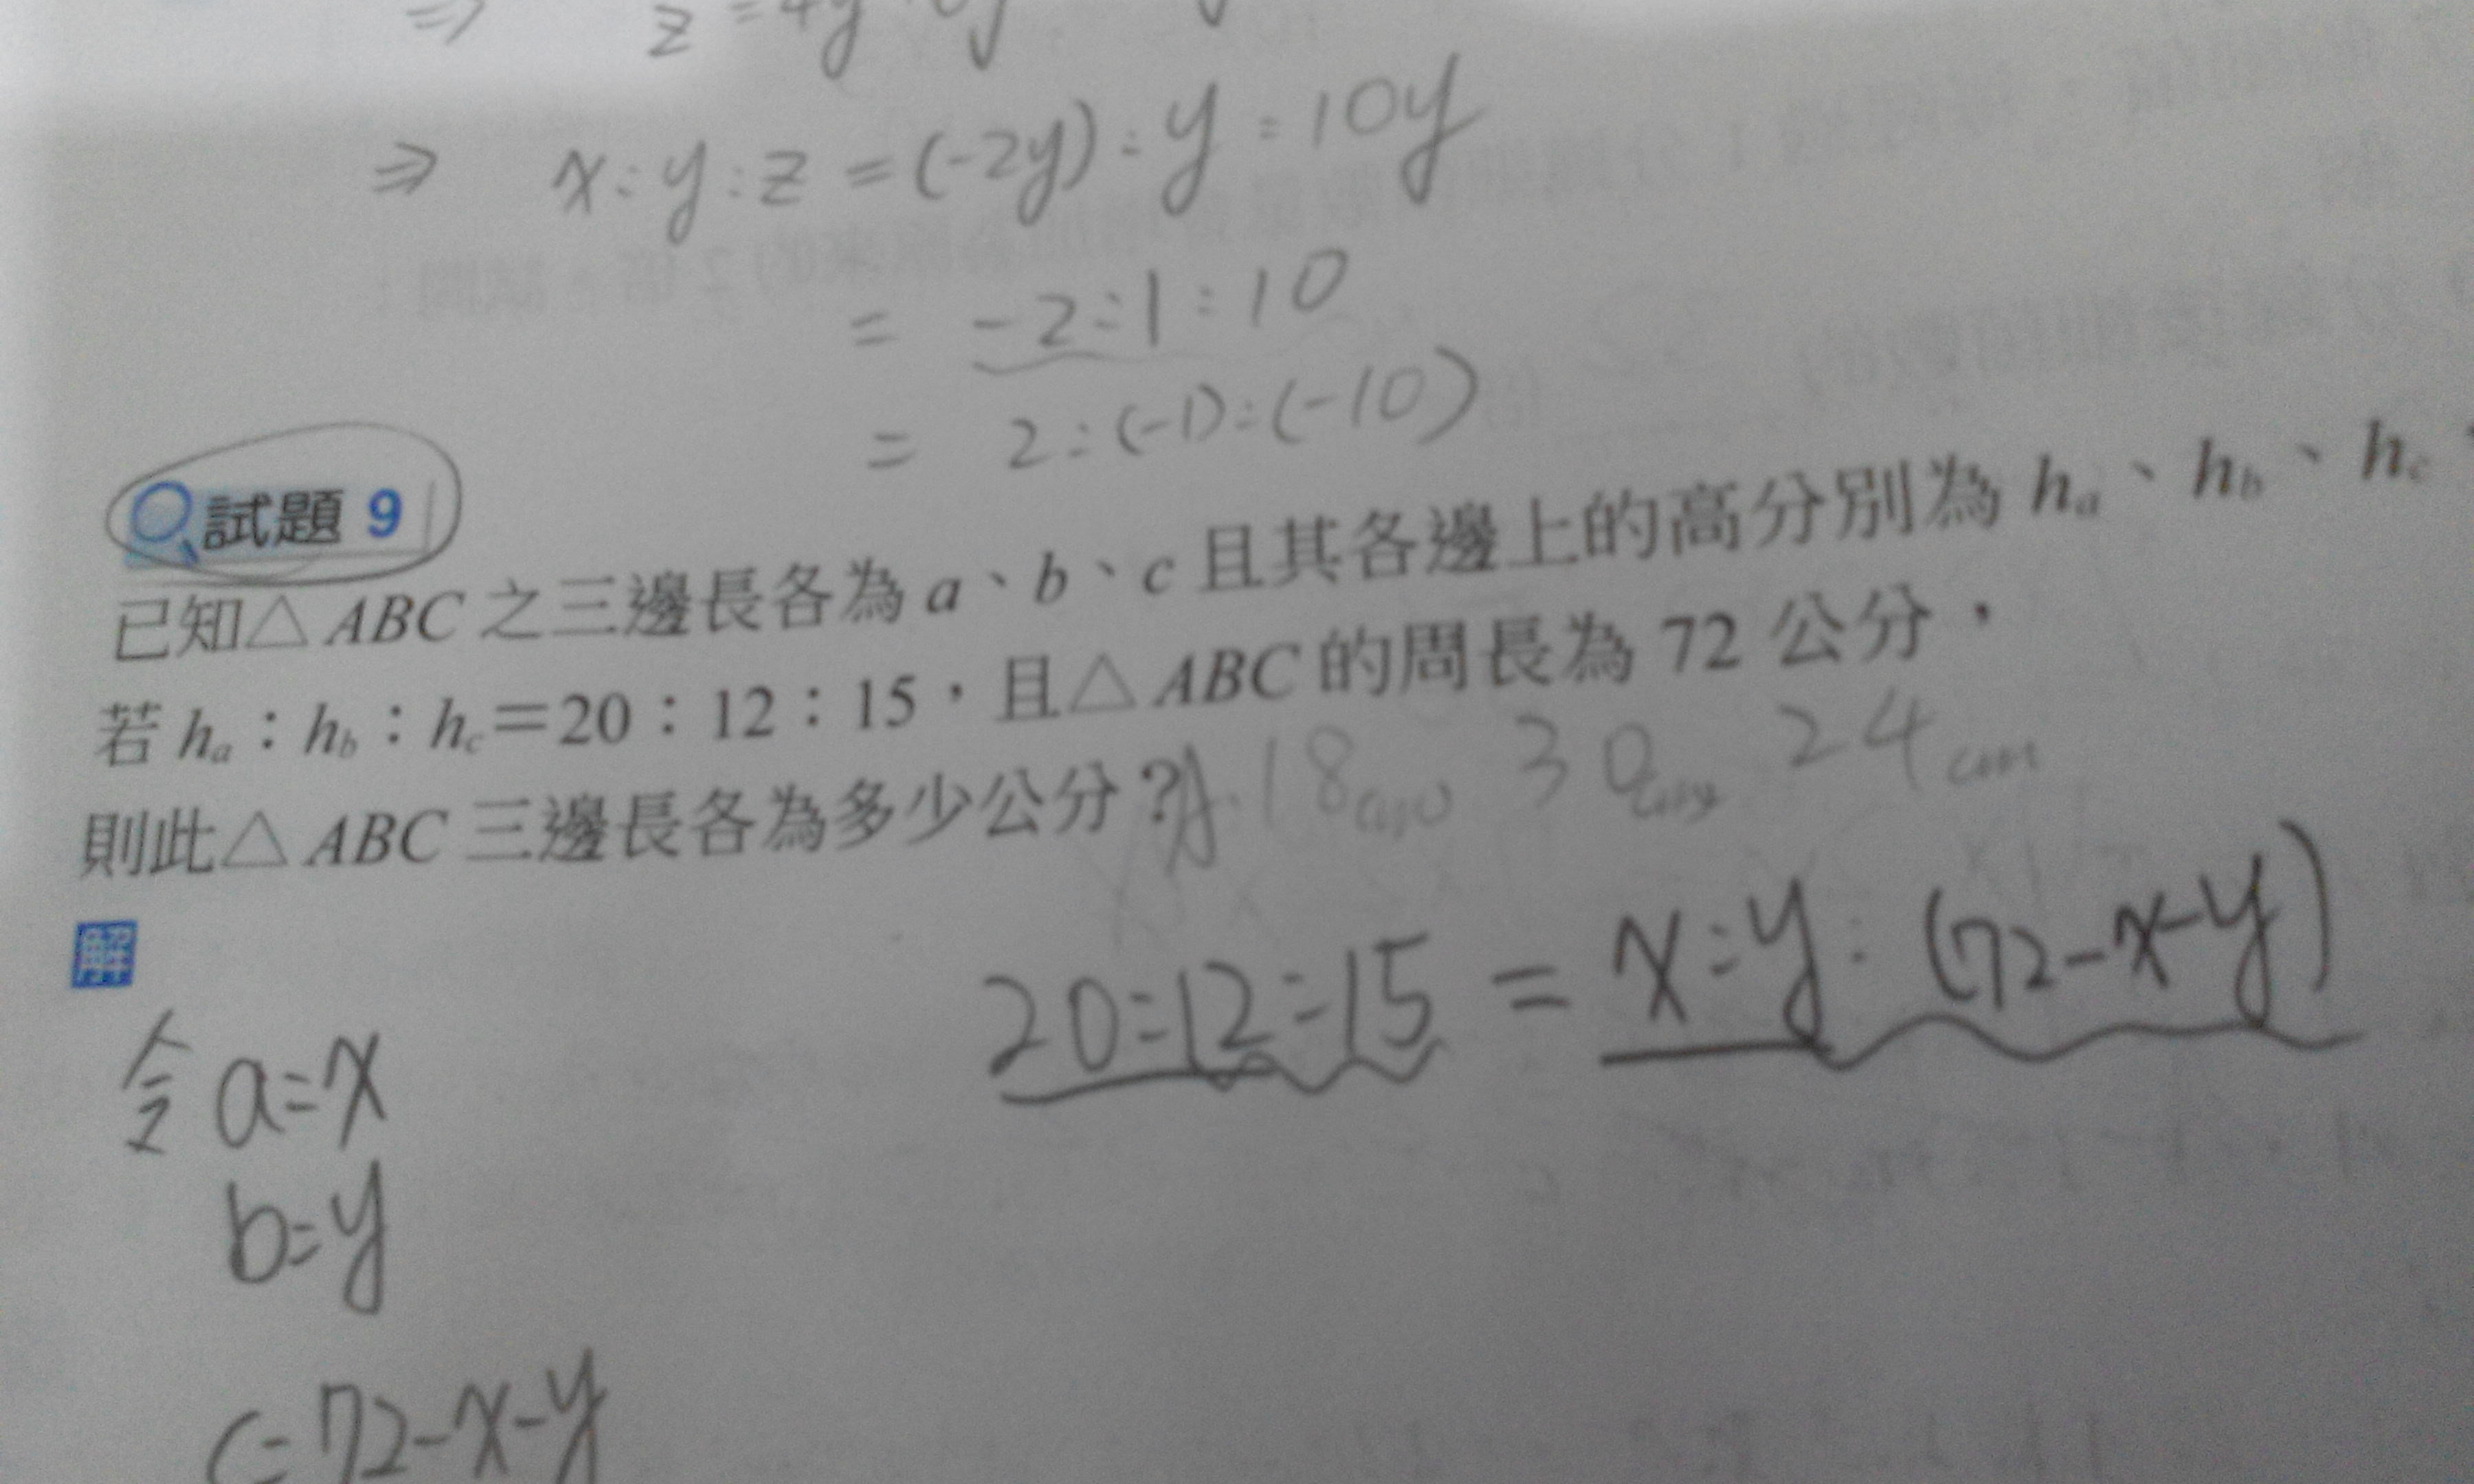 ⇒ z = 4y
⇒ x : y : z = (-2y) : y : 10y
= -2 : 1 : 10
= 2 : (-1) : (-10)
試題 9
已知△ABC 之三邊長各為 a、b、c 且其各邊上的高分別為 hₐ、h_b、h_c，
若 hₐ：h_b：h_c＝20：12：15，且△ABC 的周長為 72 公分，
則此△ABC 三邊長各為多少公分？ A. 18cm 30cm 24cm
解
20 : 12 : 15 = x : y : (72-x-y)
令 a=x
b=y
c=72-x-y